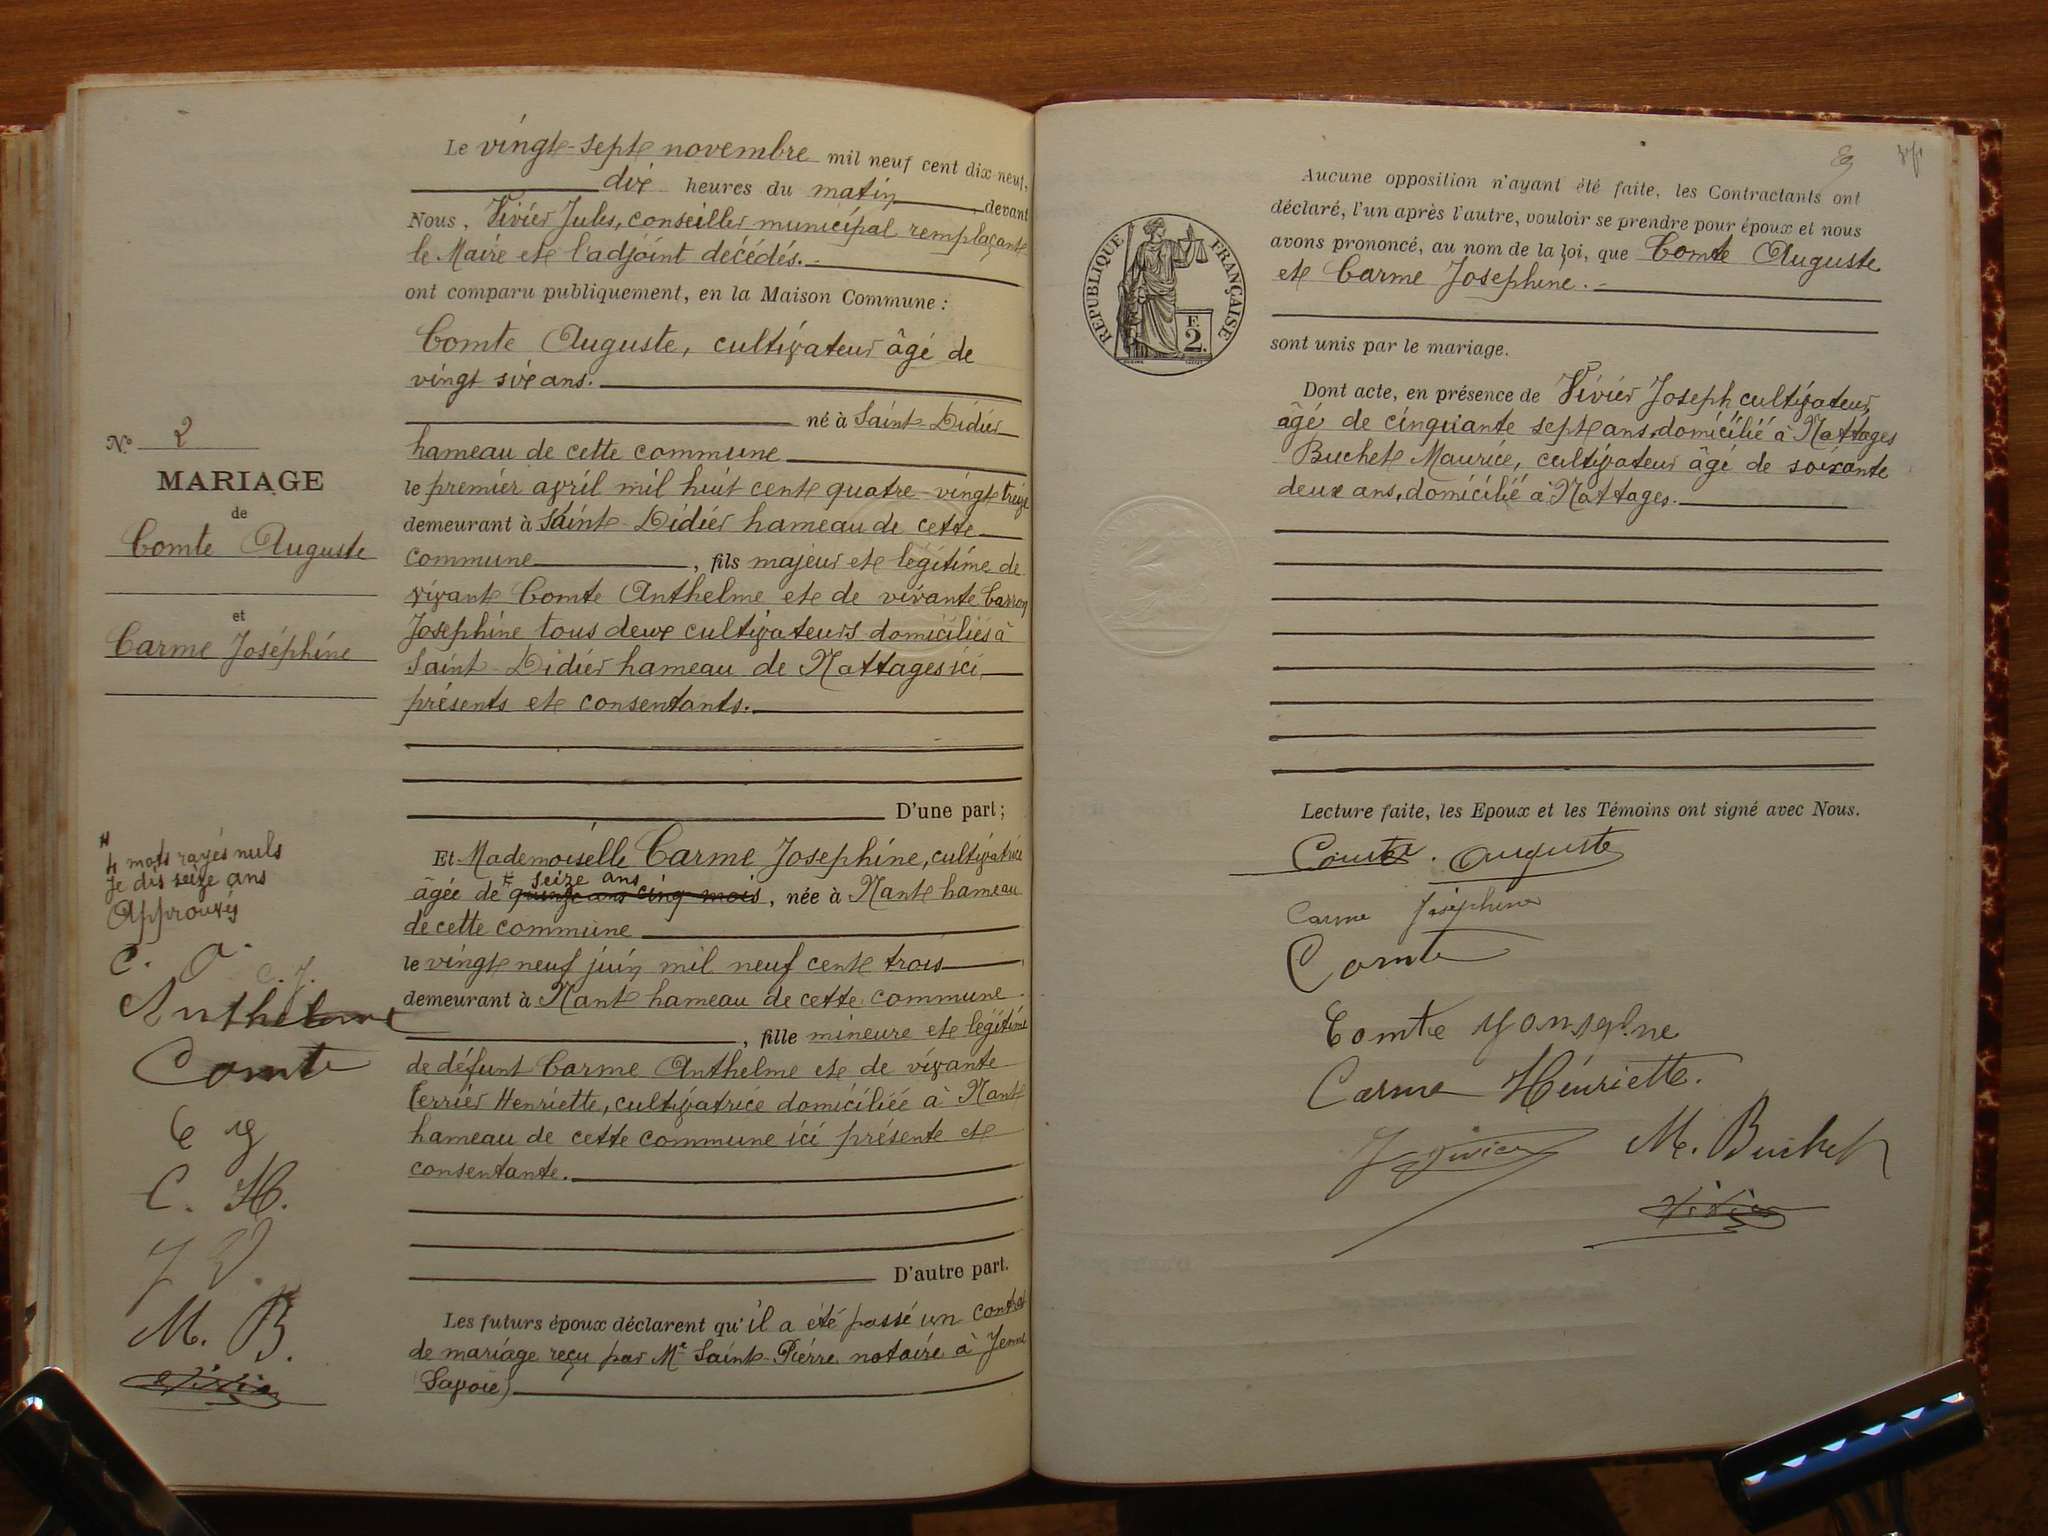 Le vingt-sept novembre mil neuf cent dix-neuf,
dix heures du matin, devant
Nous, Vivier Jules, conseiller municipal remplaçant
le Maire et l'adjoint décédés.
ont comparu publiquement, en la Maison Commune :
Comte Auguste, cultivateur âgé de
vingt six ans.
né à Saint-Didier
hameau de cette commune
le premier avril mil huit cent quatre-vingt treize
demeurant à Saint-Didier hameau de cette
commune, fils majeur et légitime de
vivant Comte Anthelme et de vivante Carron
Josephine tous deux cultivateurs domiciliés à
Saint-Didier hameau de Nattages ici
présents et consentants.
D'une part ;
Et Mademoiselle Carme Josephine, cultivatrice
seize ans
âgée de quinze ans cinq mois, née à Nant hameau
de cette commune
le vingt neuf juin mil neuf cent trois
demeurant à Nant hameau de cette commune
, fille mineure et légitime
de défunt Carme Anthelme et de vivante
Terrier Henriette, cultivatrice domiciliée à Nant
hameau de cette commune ici présente et
consentante.
D'autre part.
Les futurs époux déclarent qu'il a été passé un contrat
de mariage reçu par Me Saint-Pierre notaire à Yenne
(Savoie)
No 2
MARIAGE
de
Comte Auguste
et
Carme Joséphine
4 mots rayés nuls
Je dis seize ans
Approuvés
C. A.
C. J.
Anthelme
Comte
C y
C. H.
J V.
M. B.
Vivier
Aucune opposition n'ayant été faite, les Contractants ont
déclaré, l'un après l'autre, vouloir se prendre pour époux et nous
avons prononcé, au nom de la loi, que Comte Auguste
et Carme Josephine.
sont unis par le mariage.
RÉPUBLIQUE FRANÇAISE
F.
2.
Dont acte, en présence de Vivier Joseph cultivateur,
âgé de cinquante sept ans, domicilié à Nattages
Buchet Maurice, cultivateur âgé de soixante
deux ans, domicilié à Nattages.
Lecture faite, les Epoux et les Témoins ont signé avec Nous.
Comte Auguste
Carme Joséphine
Comte
Comte
Carme Henriette.
J Vivier
M. Buchet
Vivier